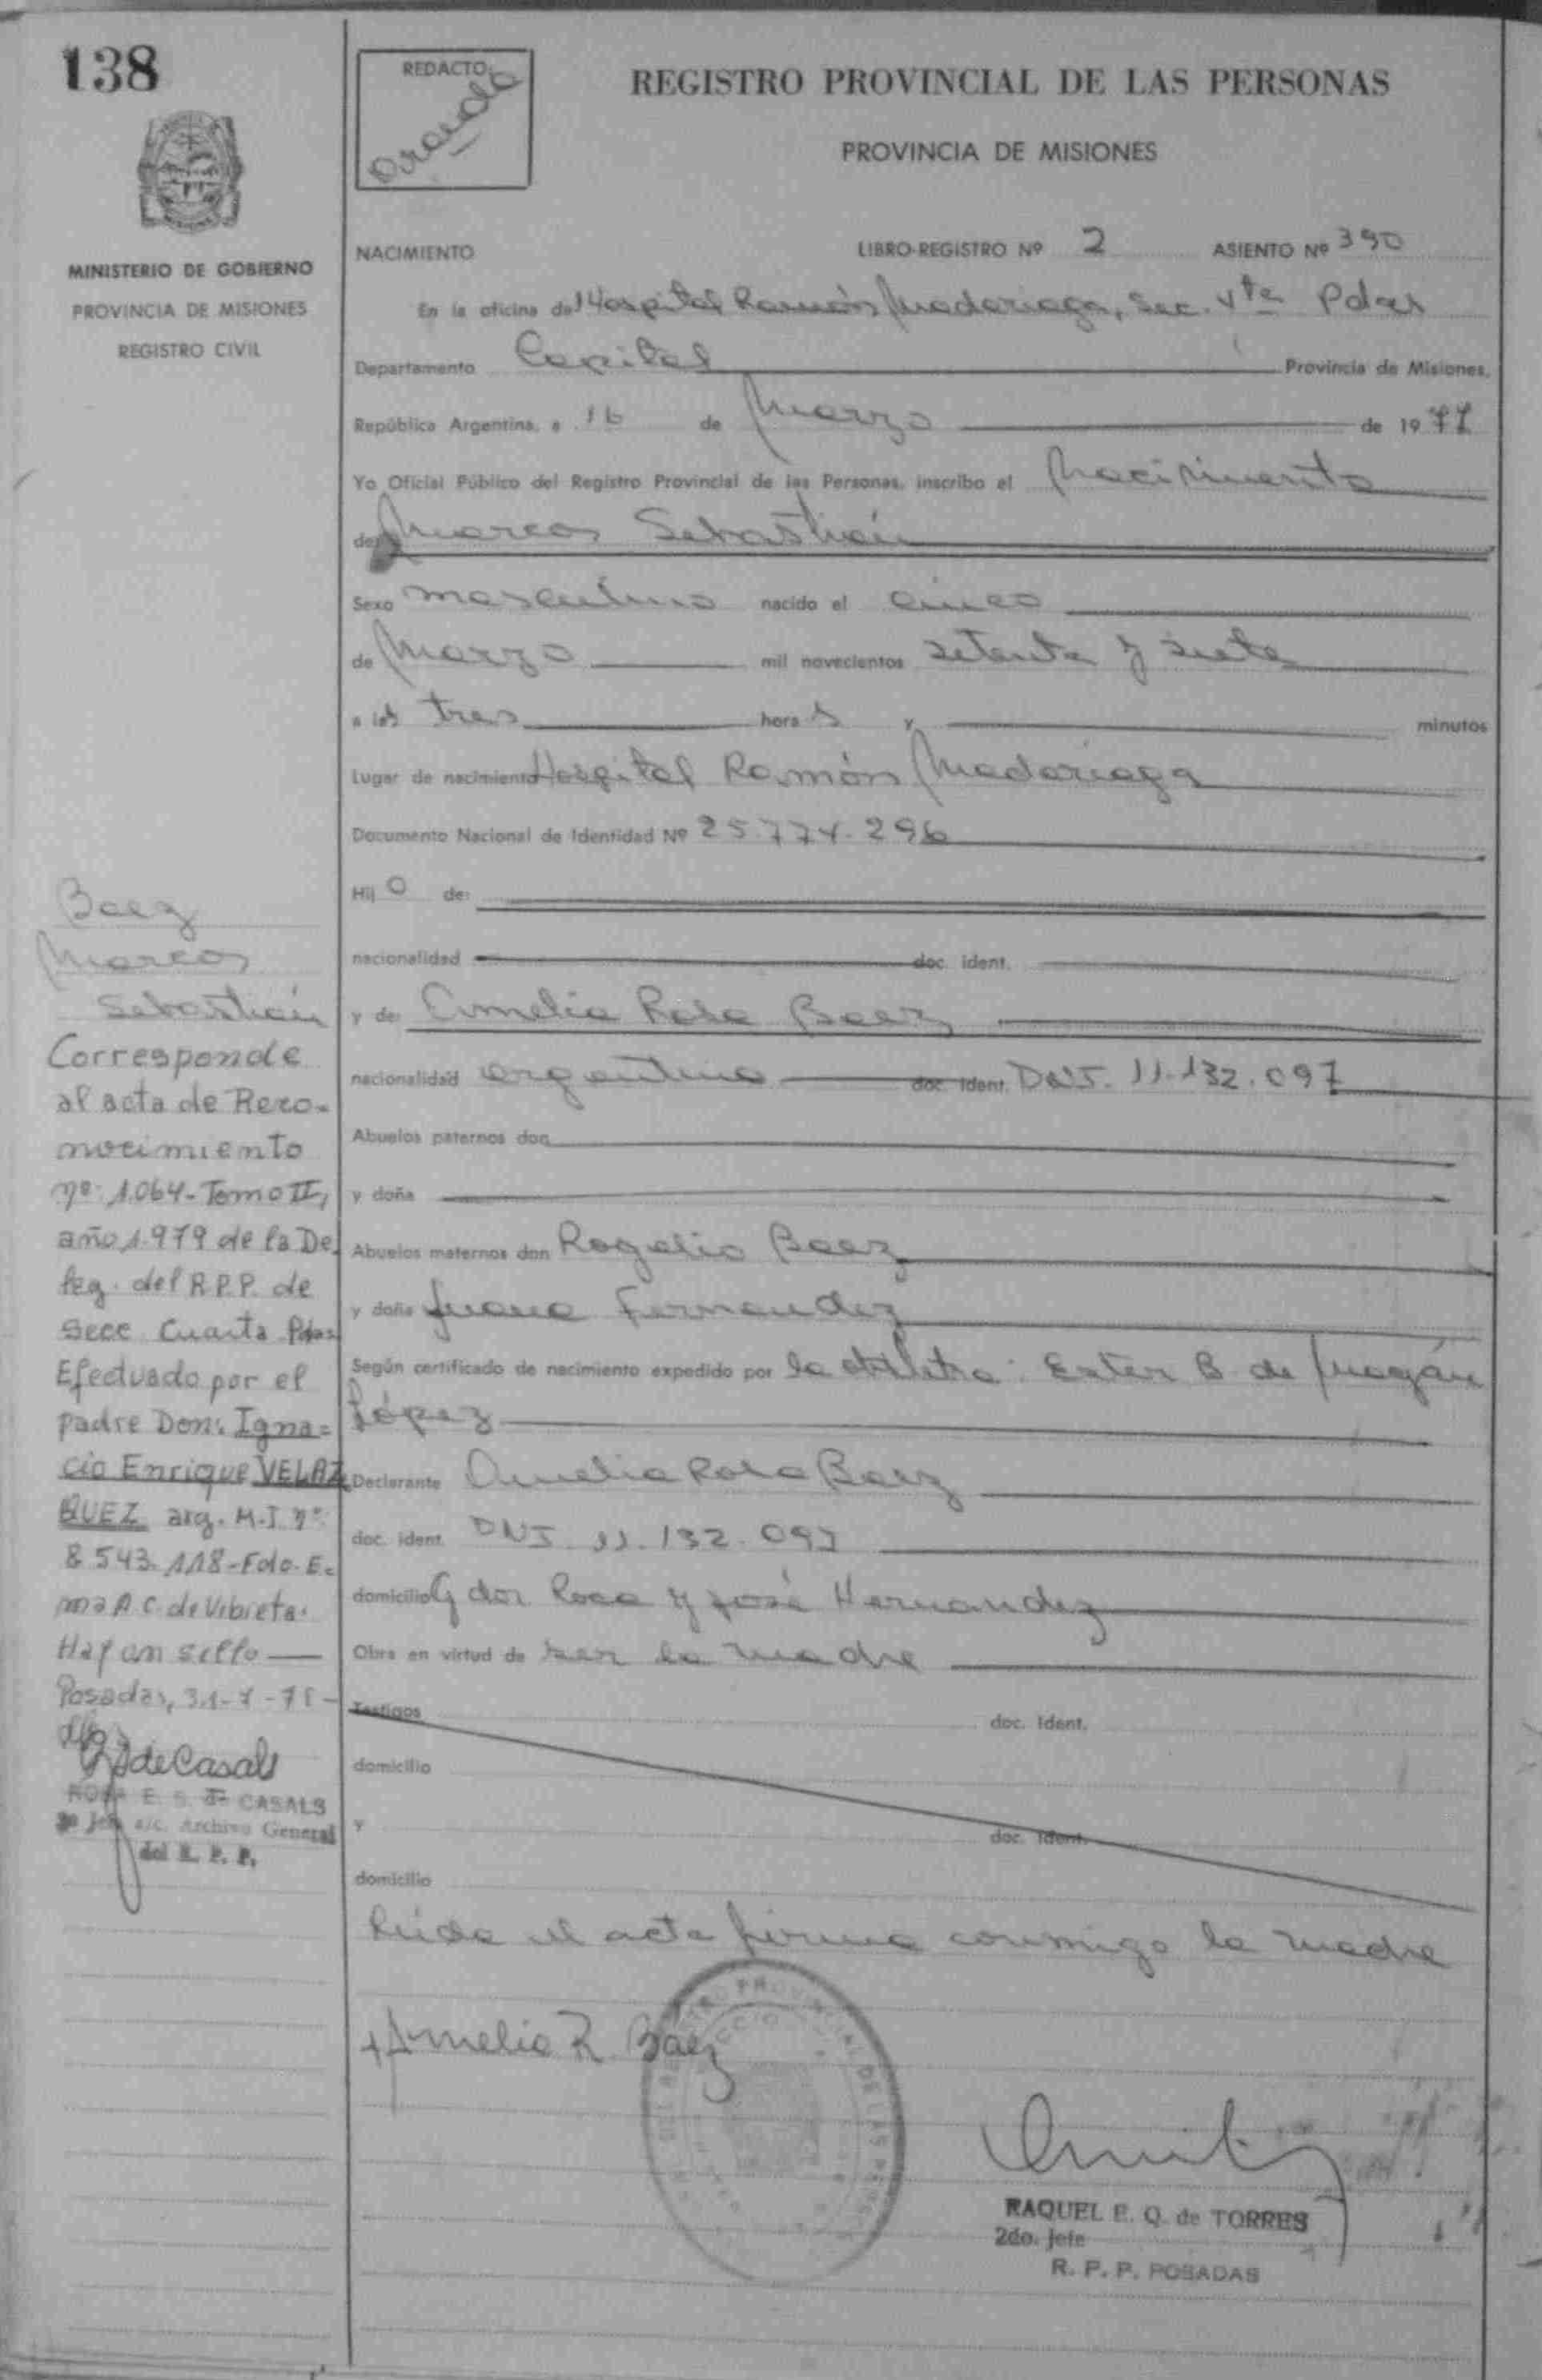 138
REDACTO:
REGISTRO PROVINCIAL DE LAS PERSONAS
PROVINCIA DE MISIONES
MINISTERIO DE GOBIERNO
PROVINCIA DE MISIONES
REGISTRO CIVIL
NACIMIENTO LIBRO-REGISTRO Nº 2 ASIENTO Nº 390
En la oficina del Hospital Ramón Madariaga, Sec. Vta Pdas
Departamento Capital Provincia de Misiones,
República Argentina, a 16 de Marzo de 1977
Yo Oficial Público del Registro Provincial de las Personas, inscribo el Nacimiento
de Marcos Sebastián
Sexo masculino nacido el cinco
de Marzo mil novecientos setenta y siete
a las tres horas y minutos
Lugar de nacimiento Hospital Ramón Madariaga
Documento Nacional de Identidad Nº 25.774.296
Hijo de:
nacionalidad doc. ident.
y de Amelia Rosa Baez
nacionalidad argentina doc. ident. DNI. 11.132.097
Abuelos paternos don
y doña
Abuelos maternos don Rogelio Baez
y doña Juana Fernandez
Según certificado de nacimiento expedido por la obstetra: Ester B. de Magán
López
Declarante Amelia Rosa Baez
doc. ident. DNI. 11.132.097
domicilio Gdor Roca y José Hernandez
Obra en virtud de ser la madre
Testigos doc. Ident.
domicilio
y doc. Ident.
domicilio
Leída el acta firma conmigo la madre
Amelia R. Báez
RAQUEL E. Q. de TORRES
2do. Jefe
R. P. P. POSADAS
Baez
Marcos
Sebastián
Corresponde
al acta de Reco-
nocimiento
nº 1.064-Tomo II,
año 1.979 de la De
leg. del R.P.P. de
Secc Cuarta Pdas
Efectuado por el
padre Don: Igna=
cio Enrique VELAZ
QUEZ arg. M.I nº:
8.543.118-Fdo. E.
ma A. C. de Vibieta.
Hay un sello
Posadas,
de Casals
ROSA E. S. de CASALS
Jefe a/c. Archivo General
del R. P. P.